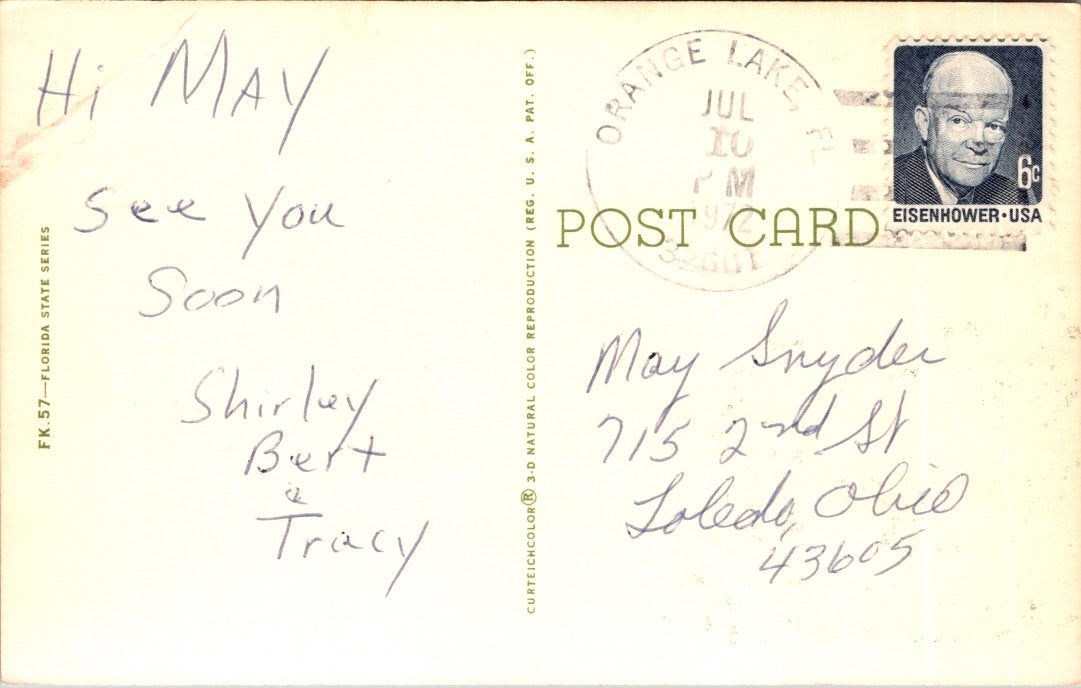 Hi MAY
See You
Soon
Shirley
Bert
&
Tracy
FK.57—FLORIDA STATE SERIES
CURTEICHCOLOR® 3-D NATURAL COLOR REPRODUCTION (REG. U. S. A. PAT. OFF.)
ORANGE LAKE, FL
JUL
10
PM
1972
POST CARD
6c
EISENHOWER·USA
May Snyder
715 2nd St
Toledo, Ohio
43605